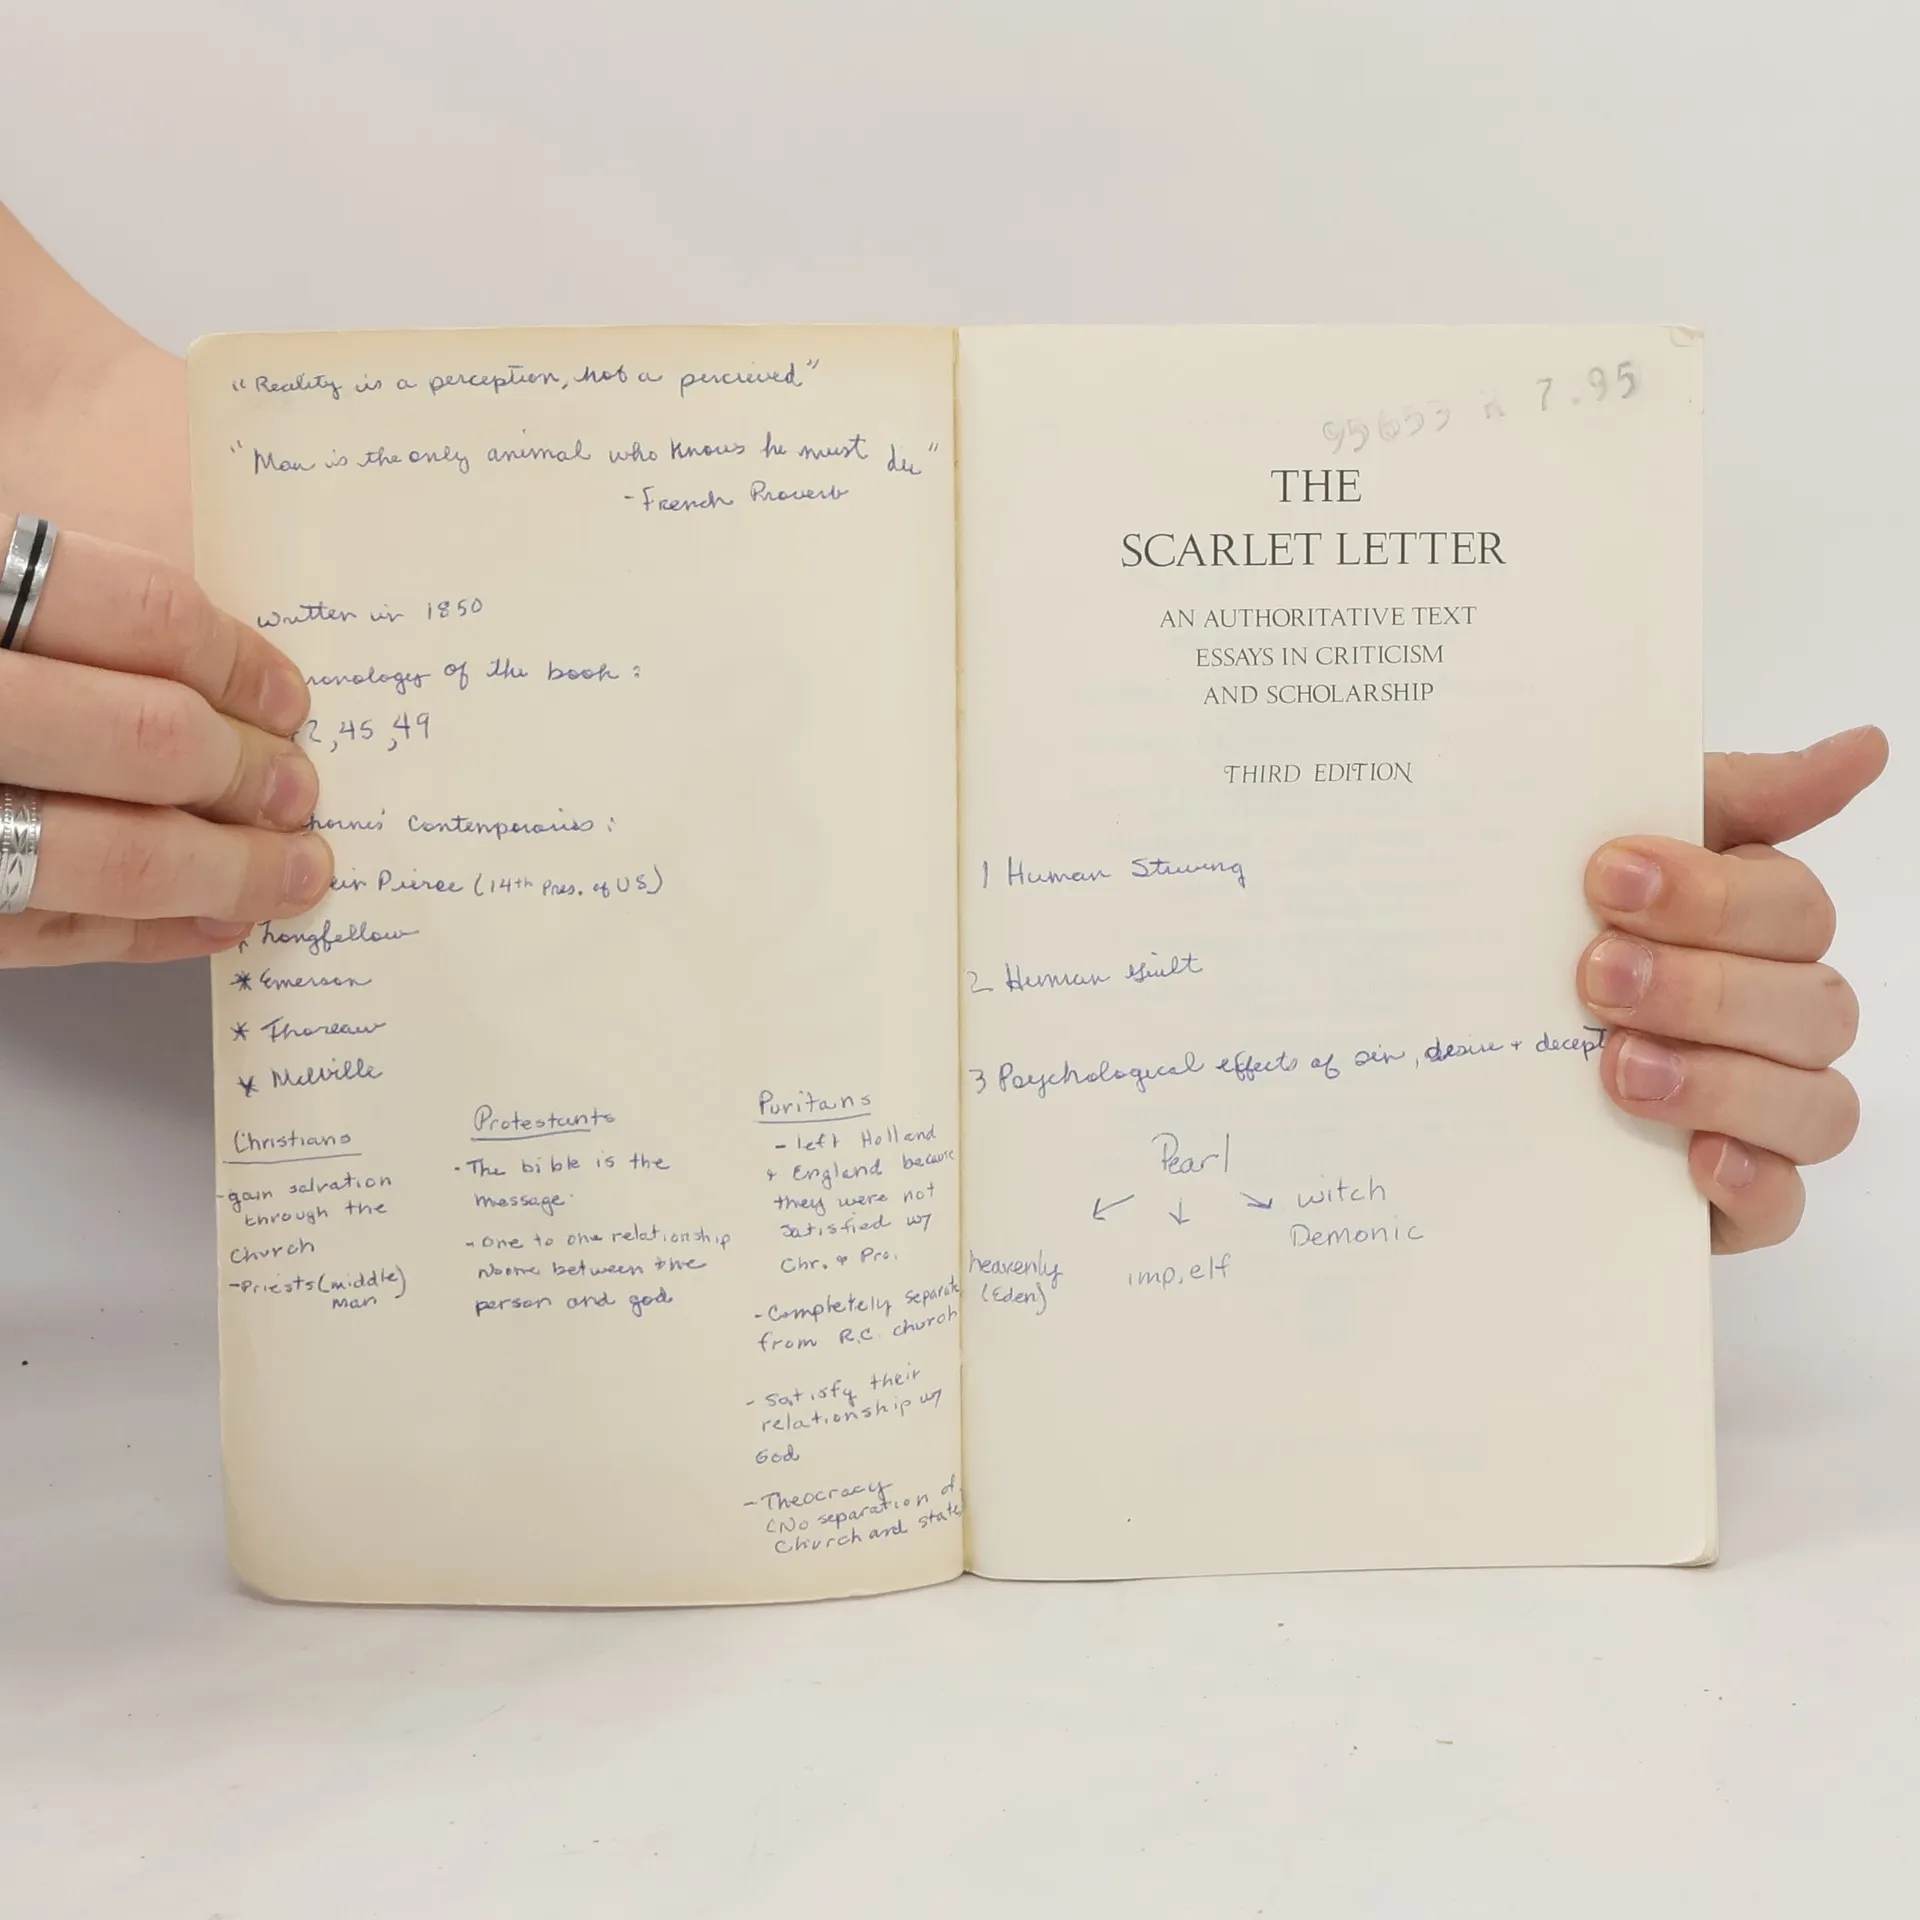 "Reality is a perception, not a percieved"
"Man is the only animal who knows he must die"
-French Proverb
written in 1850
ronology of the book:
2, 45, 49
hornes' Contemporaries:
Pierce (14th Pres. of US)
Longfellow
* Emerson
* Thoreau
* Melville
Christians
-gain salvation
through the
Church
-Priests (middle)
man
Protestants
-The bible is the
message.
-One to one relationship
Noone between the
person and god
Puritans
- left Holland
& England because
they were not
satisfied w/
Chr. & Pro.
-Completely separate
from R.C. church
- Satisfy their
relationship w/
God
-Theocracy
(No separation of
Church and state
95653 7.95
THE
SCARLET LETTER
AN AUTHORITATIVE TEXT
ESSAYS IN CRITICISM
AND SCHOLARSHIP
THIRD EDITION
1 Human
2 Human Guilt
3 Psychological effects of sin, desire + decept
Pearl
witch
Demonic
heavenly
(Eden)
imp, elf